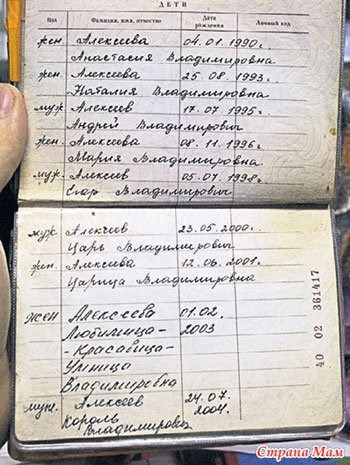 ДЕТИ
Пол Фамилия, имя, отчество Дата рождения Личный код
жен Алексеева 04.01.1990г.
Анастасия Владимировна
жен. Алексеева 25.08.1993г.
Наталия Владимировна
муж Алексеев 17.07.1995г.
Андрей Владимирович
жен. Алексеева 08.11.1996г.
Мария Владимировна
муж Алексеев 05.07.1998г.
Егор Владимирович
муж Алексеев 23.05.2000г.
Царь Владимирович
жен. Алексеева 12.06.2001г.
Царица Владимировна
жен Алексеева 01.02.
Любимица- 2003
-Красавица-
Умница
Владимировна
муж. Алексеев 24.07.
Король 2004.
Владимирович
40 02 361417
Страна Мам